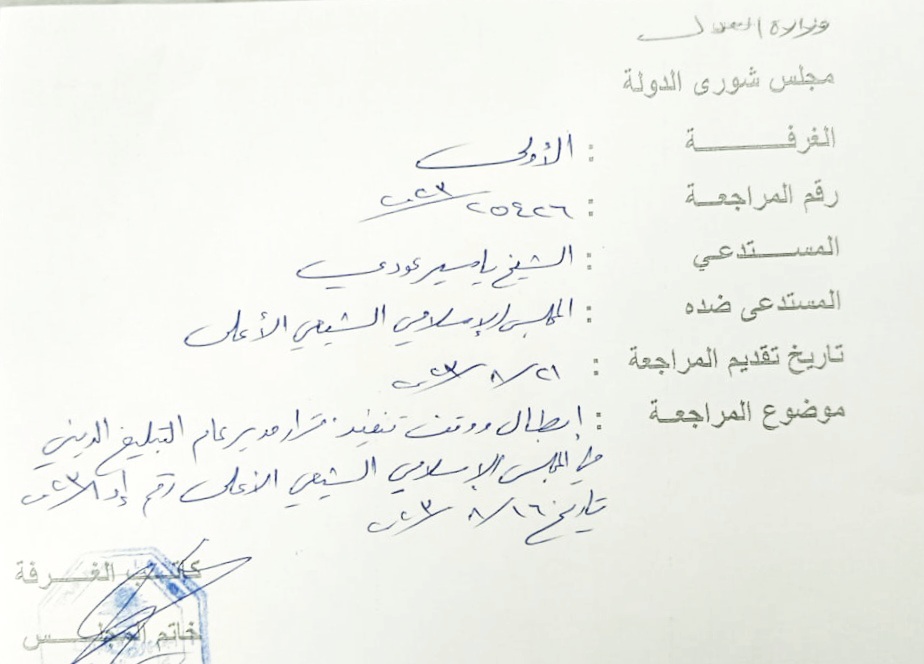 وزارة العدل
مجلس شورى الدولة
الغرفة : الأولى
رقم المراجعة : ٢٥٤٢٦/٢٠٢٣
المستدعي : الشيخ ياسر عودي
المستدعى ضده : المجلس الإسلامي الشيعي الأعلى
تاريخ تقديم المراجعة : ٢١/٨/٢٠٢٣
موضوع المراجعة : إبطال ووقف تنفيذ قرار مدير عام التبليغ الديني
في المجلس الإسلامي الشيعي الأعلى رقم
تاريخ ١٦/٨/٢٠٢٣
كاتب الغرفة
خاتم المجلس